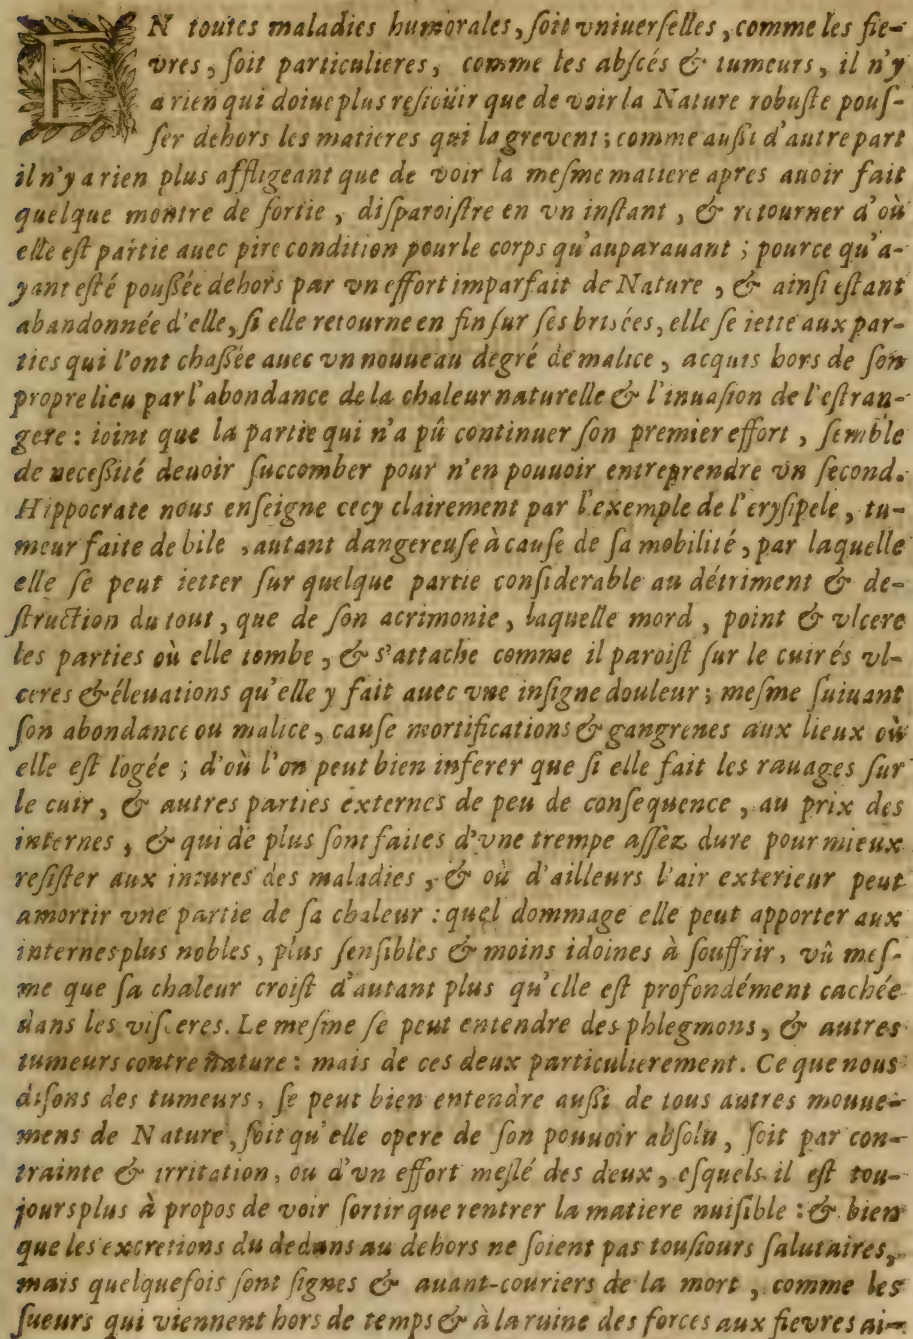 EN toutes maladies humorales, ſoit vniuerſelles, comme les fie-
vres, ſoit particulieres, comme les abſcés & tumeurs, il n'y
a rien qui doiue plus reſioüir que de voir la Nature robuſte pouſ-
ſer dehors les matieres qui la greuent; comme auſſi d'autre part
il n'y a rien plus affligeant que de voir la meſme matiere apres auoir fait
quelque montre de ſortie, diſparoiſtre en vn inſtant, & retourner d'où
elle eſt partie auec pire condition pour le corps qu'auparauant; pource qu'a-
yant eſté pouſſée dehors par vn effort imparfait de Nature, & ainſi eſtant
abandonnée d'elle, ſi elle retourne en fin ſur ſes briſées, elle ſe iette aux par-
ties qui l'ont chaſſée auec vn nouueau degré de malice, acquis hors de ſon
propre lieu par l'abondance de la chaleur naturelle & l'inuaſion de l'eſtran-
gere: ioint que la partie qui n'a pû continuer ſon premier effort, ſemble
de neceſſité deuoir ſuccomber pour n'en pouuoir entreprendre vn ſecond.
Hippocrate nous enſeigne cecy clairement par l'exemple de l'eryſipele, tu-
meur faite de bile, autant dangereuſe à cauſe de ſa mobilité, par laquelle
elle ſe peut ietter ſur quelque partie conſiderable au détriment & de-
ſtruction du tout, que de ſon acrimonie, laquelle mord, point & vlcere
les parties où elle tombe, & s'attache comme il paroiſt ſur le cuir és vl-
ceres & éleuations qu'elle y fait auec vne inſigne douleur; meſme ſuiuant
ſon abondance ou malice, cauſe mortifications & gangrenes aux lieux où
elle eſt logée; d'où l'on peut bien inferer que ſi elle fait les rauages ſur
le cuir, & autres parties externes de peu de conſequence, au prix des
internes, & qui de plus ſont faites d'vne trempe aſſez dure pour mieux
reſiſter aux iniures des maladies, & où d'ailleurs l'air exterieur peut
amortir vne partie de ſa chaleur: quel dommage elle peut apporter aux
internes plus nobles, plus ſenſibles & moins idoines à ſouffrir, vû meſ-
me que ſa chaleur croiſt d'autant plus qu'elle eſt profondément cachée
dans les viſceres. Le meſme ſe peut entendre des phlegmons, & autres
tumeurs contre nature: mais de ces deux particulierement. Ce que nous
diſons des tumeurs, ſe peut bien entendre auſſi de tous autres mouue-
mens de Nature, ſoit qu'elle opere de ſon pouuoir abſolu, ſoit par con-
trainte & irritation, ou d'vn effort meſlé des deux, eſquels il eſt tou-
jours plus à propos de voir ſortir que rentrer la matiere nuiſible: & bien
que les excretions du dedans au dehors ne ſoient pas touſiours ſalutaires,
mais quelquefois ſont ſignes & auant-couriers de la mort, comme les
ſueurs qui viennent hors de temps & à la ruine des forces aux fievres ai-